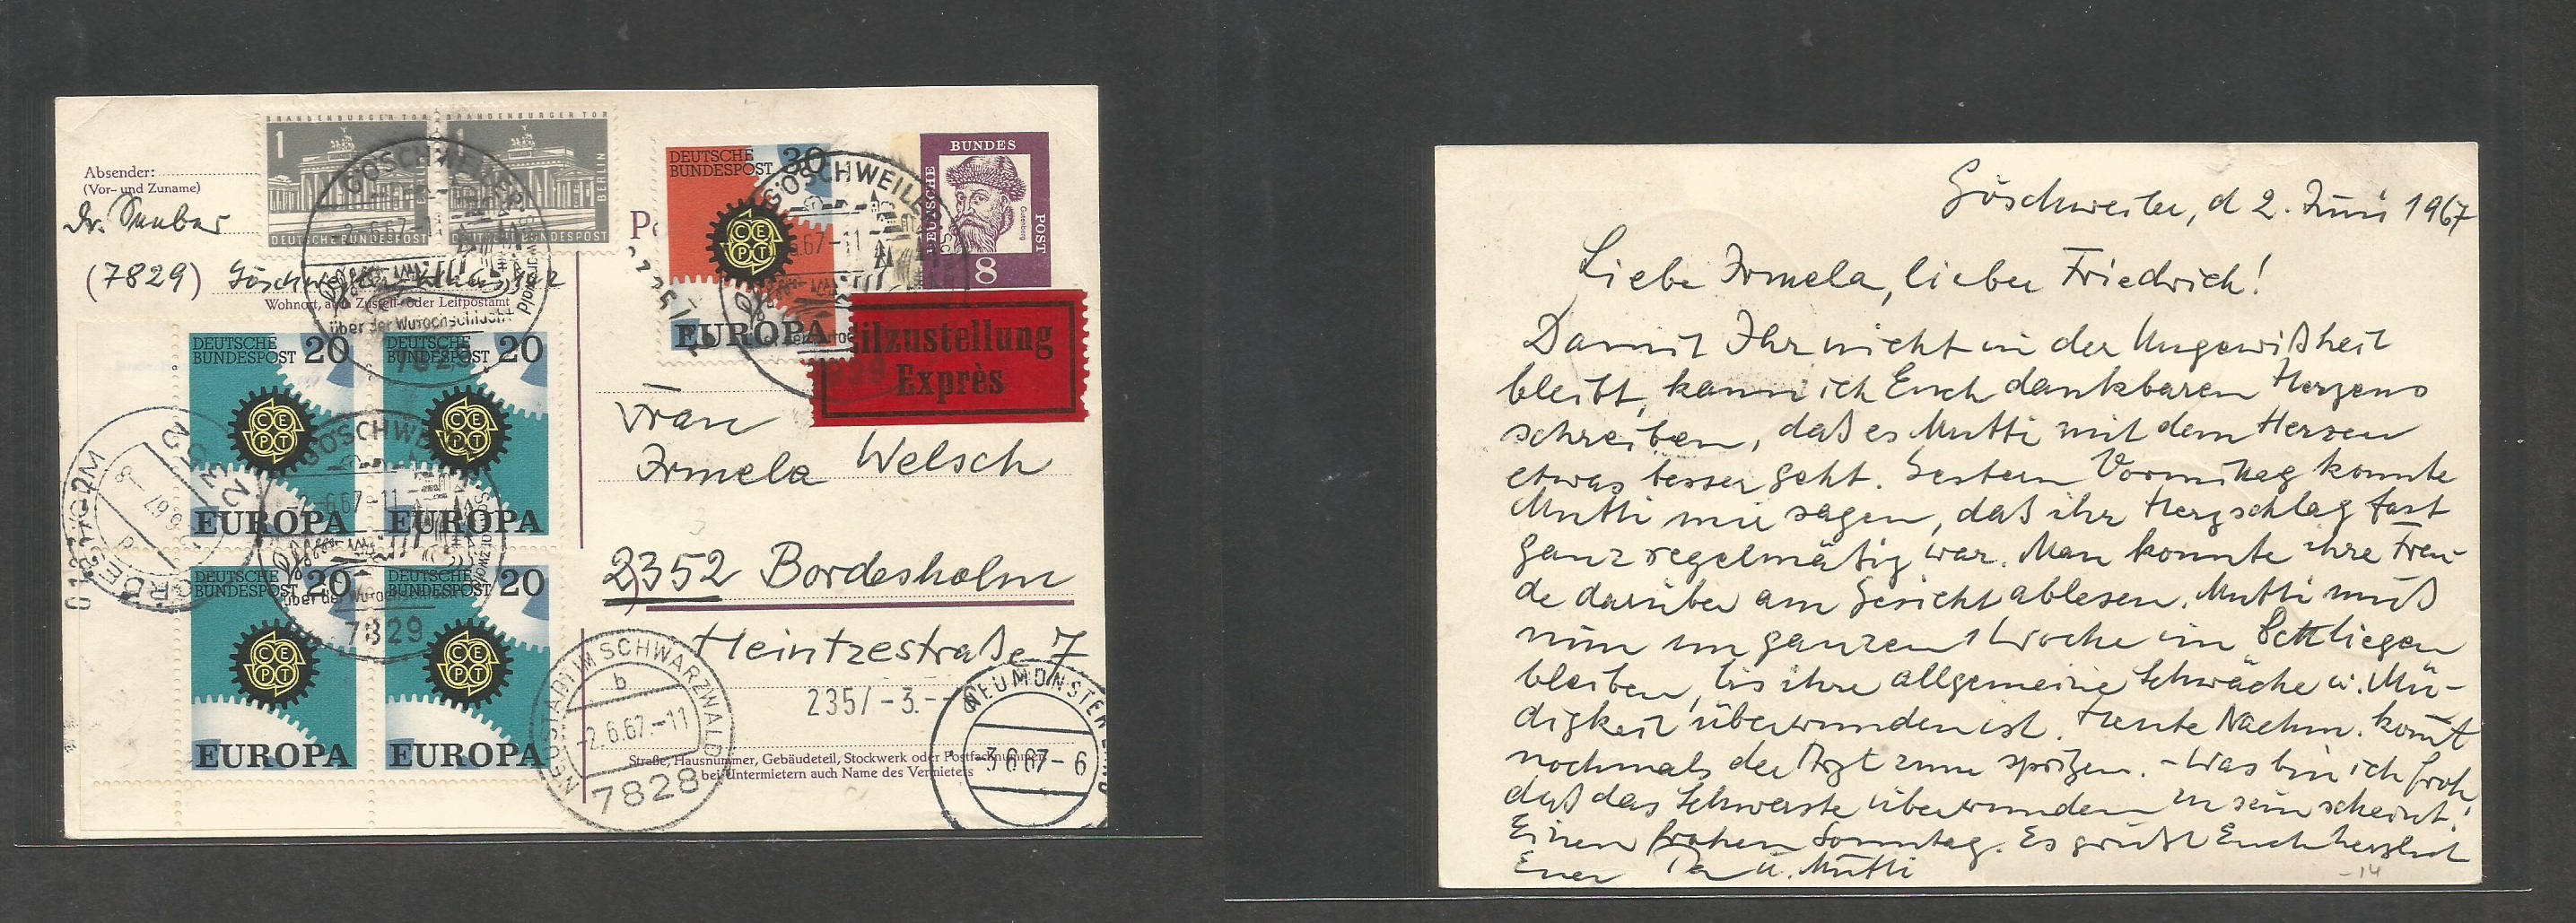 BRANDENBURGER TOR BRANDENBURGER TOR
1 1
BERLIN
DEUTSCHE BUNDESPOST DEUTSCHE BUNDESPOST
Absender:
(Vor- und Zuname)
Dr.
(7829) Göschweiler
Wohnort, auch Zustell- oder Leitpostamt
GÖSCHWEILER
2.6.67-11
über der Wutachschlucht
7829
DEUTSCHE BUNDESPOST 20
CEPT
EUROPA
DEUTSCHE BUNDESPOST 20
CEPT
EUROPA
GÖSCHWEILER
2.6.67-11
über der Wutachschlucht
7829
DEUTSCHE BUNDESPOST 20
CEPT
EUROPA
DEUTSCHE BUNDESPOST 20
CEPT
EUROPA
DEUTSCHE BUNDESPOST 30
CEPT
EUROPA
GÖSCHWEILER
DEUTSCHE BUNDES POST
Gutenberg
8
Eilzustellung
Exprès
Frau
Irmela Welsch
2352 Bordesholm
Heintzestraße 7
2357 -3.-6
NEUSTADT IM SCHWARZWALD
b
-2.6.67.-11
7828
NEUMÜNSTER
-3.6.67-6
Straße, Hausnummer, Gebäudeteil, Stockwerk oder Postfachnummer;
bei Untermietern auch Name des Vermieters
BORDESHOLM
Göschweiler, d 2. Juni 1967
Liebe Irmela, lieber Friedrich!
Damit Ihr nicht in der Ungewißheit
bleibt, kann ich Euch dankbaren Herzens
schreiben, daß es Mutti mit dem Herzen
etwas besser geht. Gestern Vormittag konnte
Mutti mir sagen, daß ihr Herzschlag fast
ganz regelmäßig war. Man konnte ihre Freu-
de darüber am Gesicht ablesen. Mutti muß
nun im ganzen 1 Woche im Bett liegen
bleiben, bis ihre allgemeine Schwäche u. Mü-
digkeit überwunden ist. Heute Nachm. kommt
nochmals der Arzt zum spritzen. - Was bin ich froh,
daß das Schwerste überwunden zu sein scheint!
Einen frohen Sonntag. Es grüßt Euch herzlich
Euer Pa u. Mutti
-14